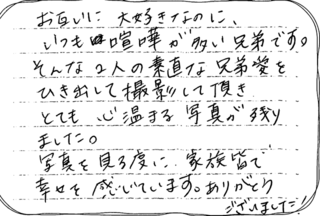 お互いに大好きなのに、
いつも喧嘩が多い兄弟です。
そんな2人の素直な兄弟愛を
ひき出して撮影して頂き
とても心温まる写真が残り
ました。
写真を見る度に家族皆で
幸せを感じています。ありがとう
ございました!